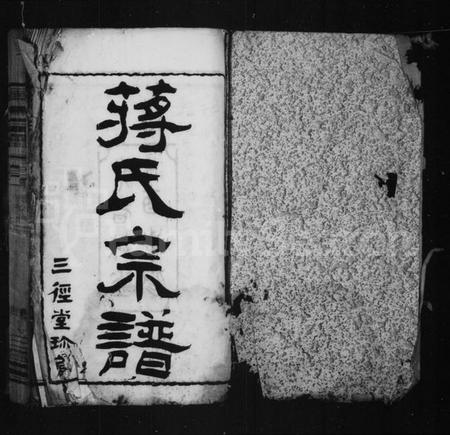 蔣氏宗譜
三徑堂珍